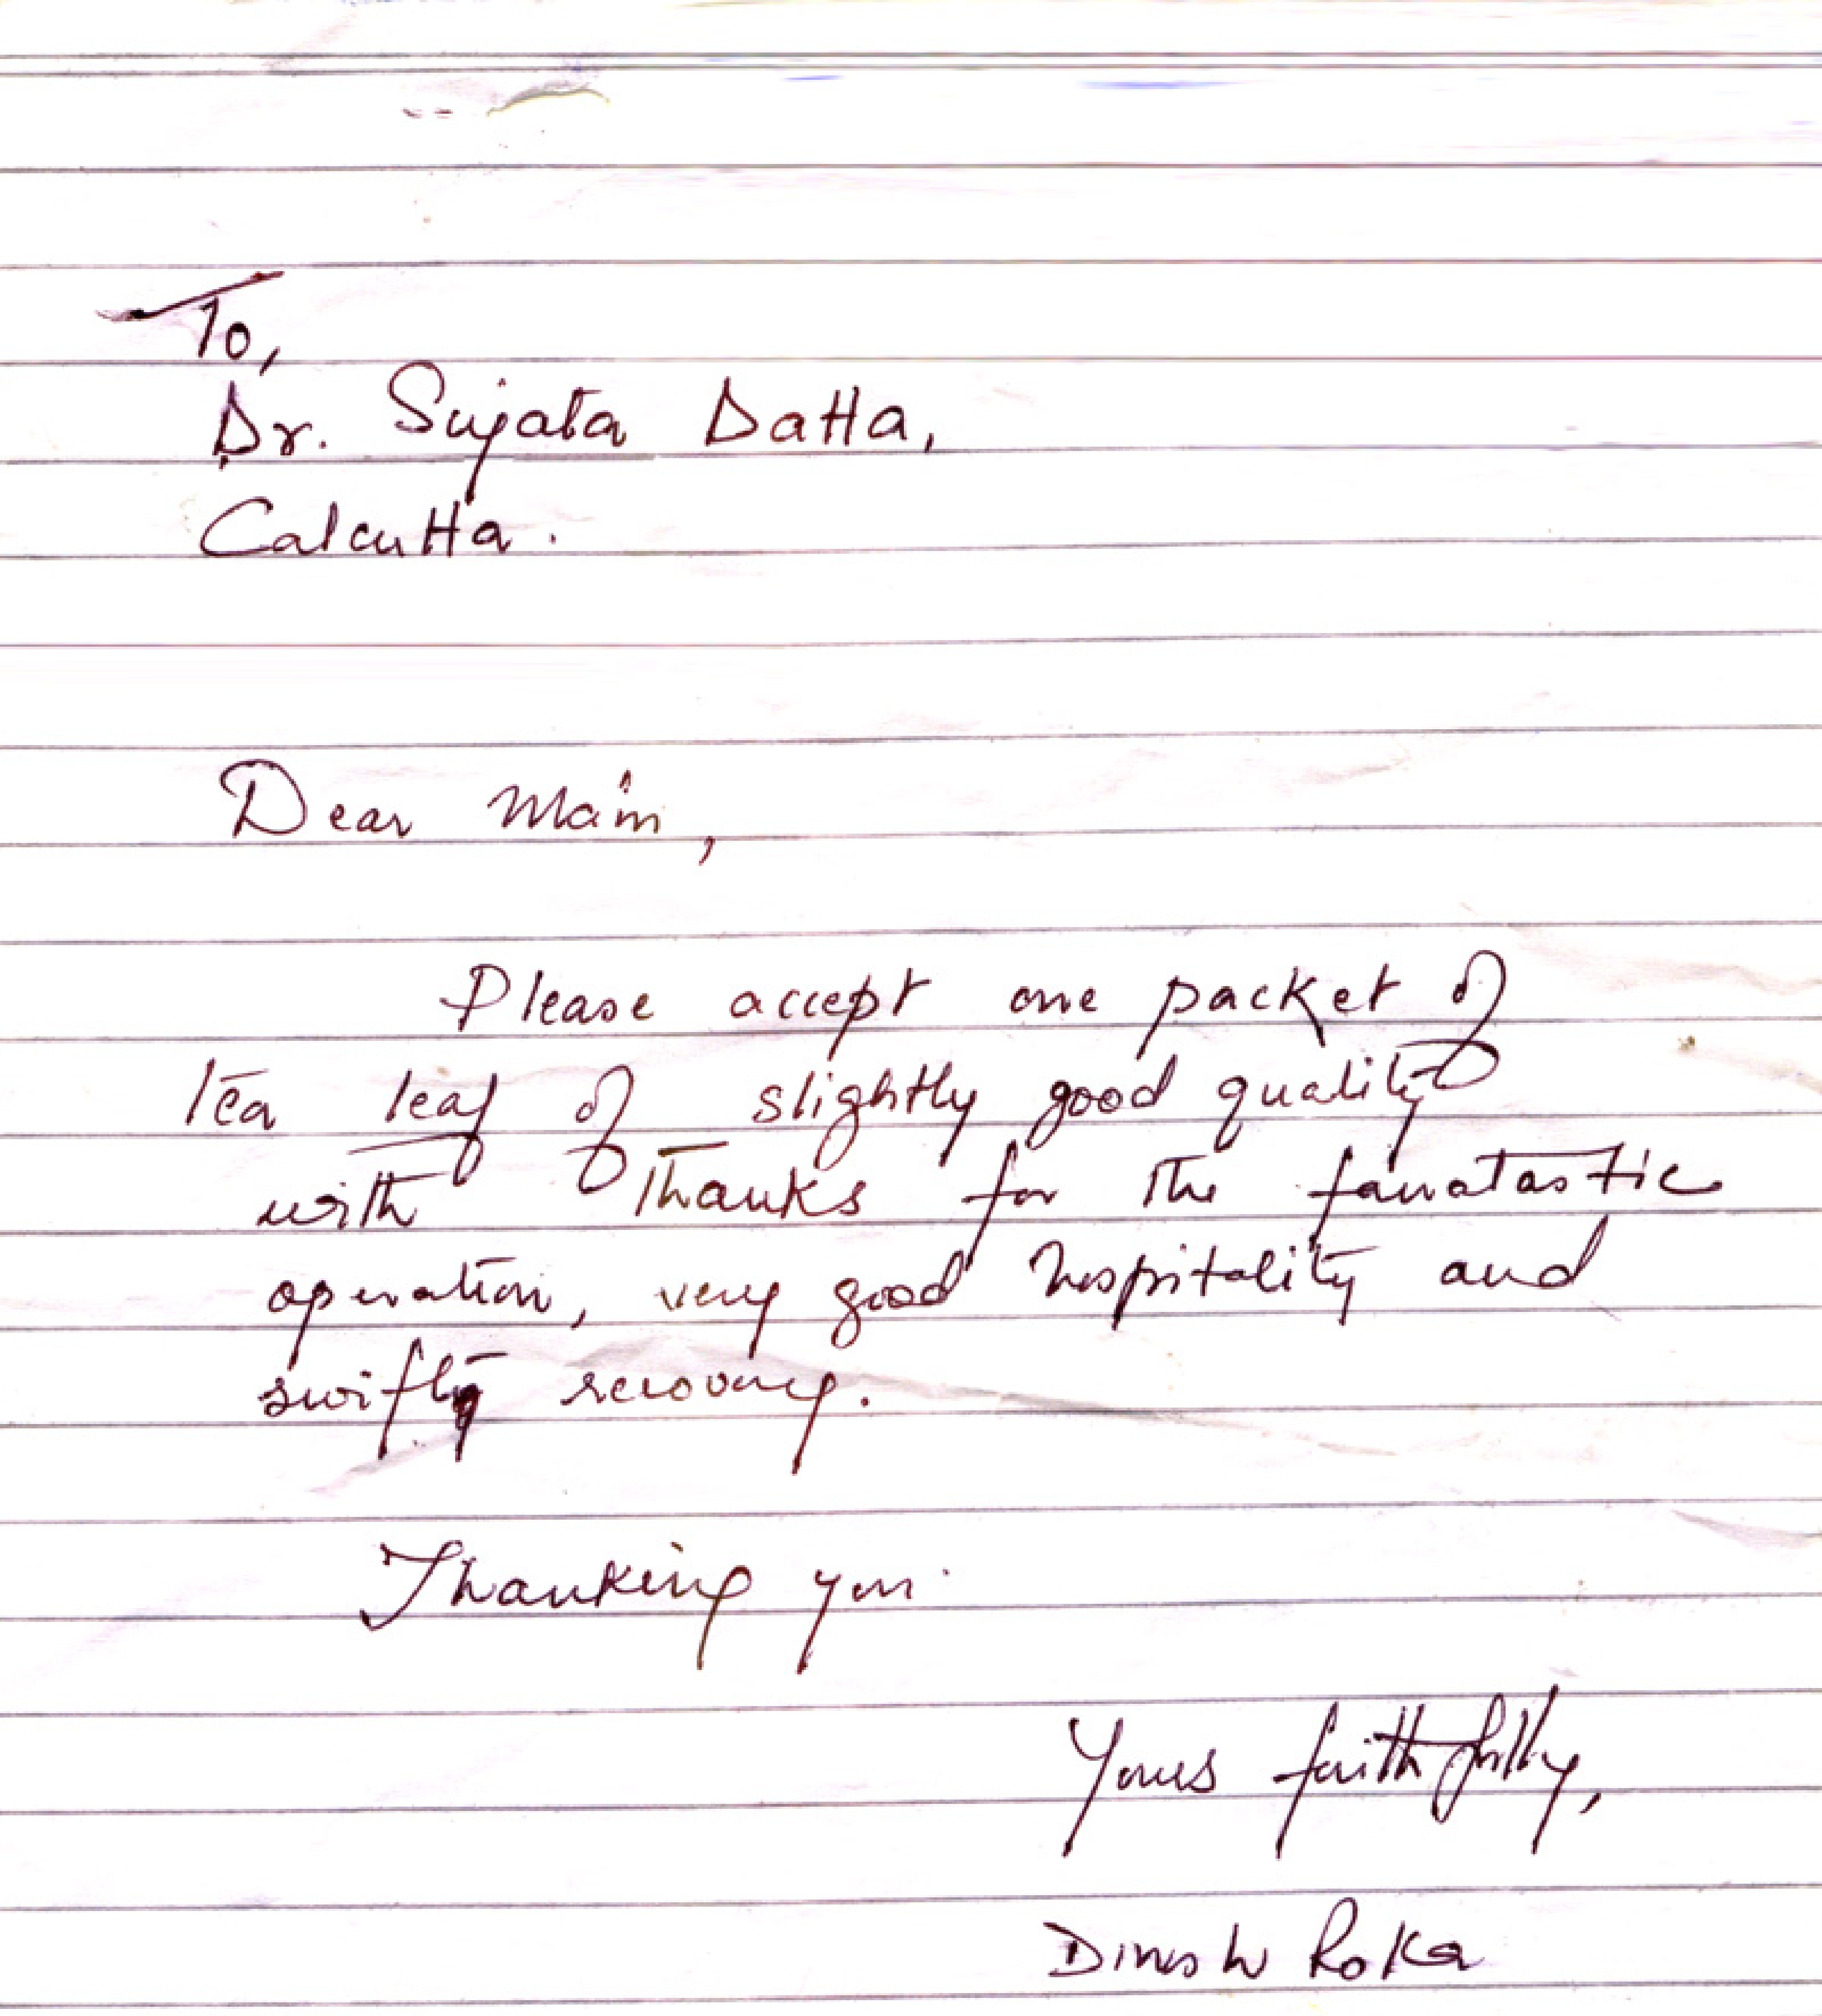 To,
Dr. Sujata Datta,
Calcutta.
Dear Ma'm,
Please accept one packet of
tea leaf of slightly good quality
with thanks for the fanatastic
operation, very good hospitality and
swifty recovery.
Thanking you.
Yours faithfully,
Dinesh Roka